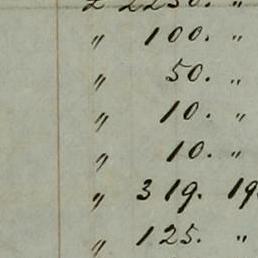 £ 2250. "
" 100. "
" 50. "
" 10. "
" 10. "
" 319. 19
" 125. "